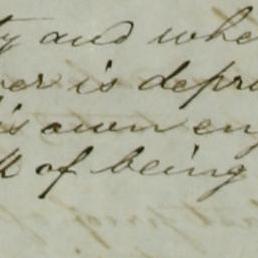 ty and whe
ver is depri
is own en
k of being